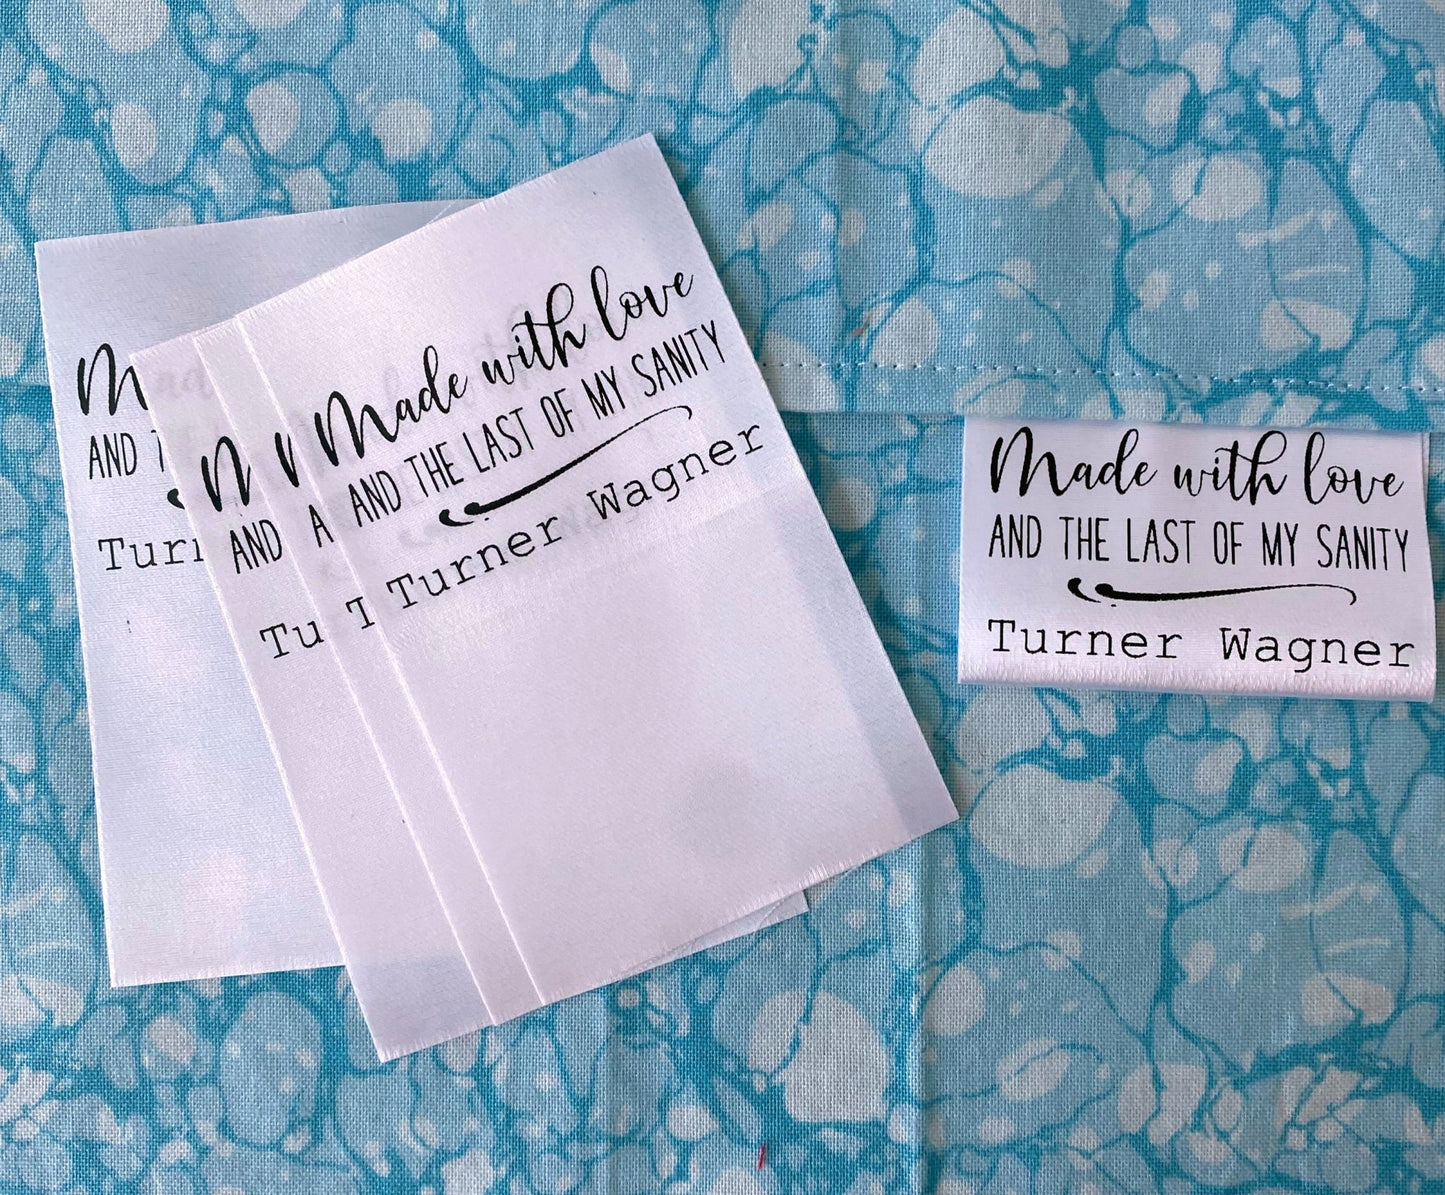 Made with love
AND THE LAST OF MY SANITY
Turner Wagner
Made with love
AND THE LAST OF MY SANITY
Turner Wagner